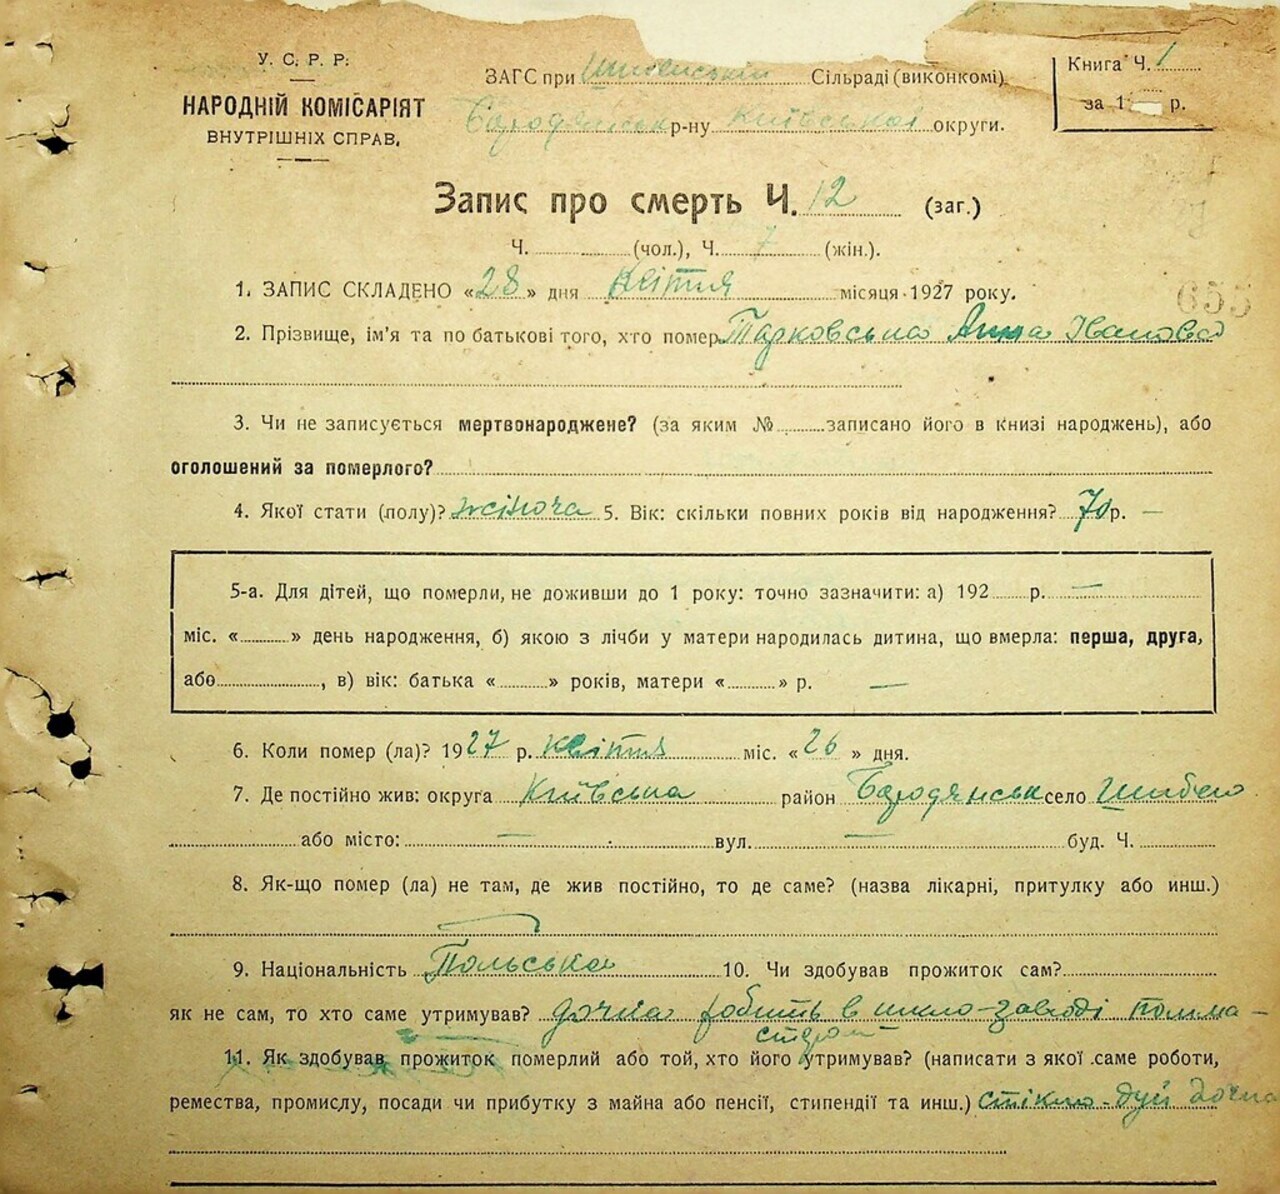 У. С. Р. Р.
НАРОДНІЙ КОМІСАРІЯТ
ВНУТРІШНІХ СПРАВ,
ЗАГС при Сільраді (виконкомі)
Бородянськ р-ну Київської округи.
Книга Ч. 1
за 1 р.
Запис про смерть Ч. 12 (заг.)
Ч. (чол.), Ч. 7 (жін.).
1. ЗАПИС СКЛАДЕНО «28» дня Квітня місяця 1927 року.
655
2. Прізвище, ім'я та по батькові того, хто помер Тарковська Анна Іванова
3. Чи не записується мертвонароджене? (за яким № записано його в книзі народжень), або
оголошений за померлого?
4. Якої стати (полу)? жіноча 5. Вік: скільки повних років від народження? 70 р. —
5-а. Для дітей, що померли, не доживши до 1 року: точно зазначити: а) 192 р. —
міс. « » день народження, б) якою з лічби у матери народилась дитина, що вмерла: перша, друга,
або , в) вік: батька « » років, матери « » р. —
6. Коли помер (ла)? 1927 р. квітня міс. «26» дня.
7. Де постійно жив: округа Київська район Бородянськ село
або місто: — вул. — буд. Ч.
8. Як-що помер (ла) не там, де жив постійно, то де саме? (назва лікарні, притулку або инш.)
9. Національність Польська 10. Чи здобував прожиток сам?
як не сам, то хто саме утримував? дочка робить в заводі
11. Як здобував прожиток померлий або той, хто його утримував? (написати з якої саме роботи,
ремества, промислу, посади чи прибутку з майна або пенсії, стипендії та инш.) дочка